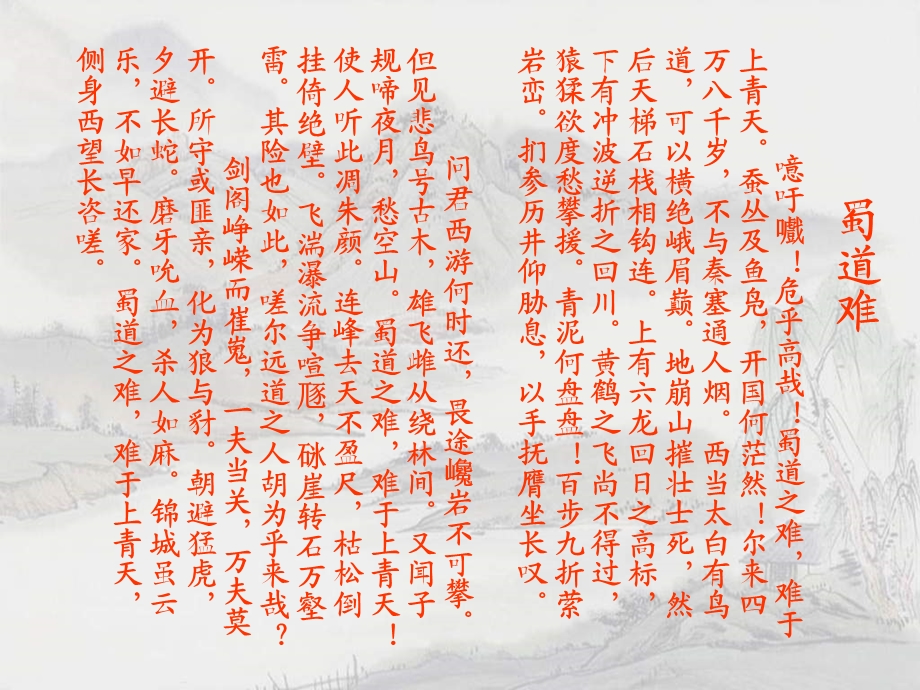 蜀道难
噫吁嚱！危乎高哉！蜀道之难，难于
上青天。蚕丛及鱼凫，开国何茫然！尔来四
万八千岁，不与秦塞通人烟。 西当太白有鸟
道，可以横绝峨眉巅。地崩山摧壮士死，然
后天梯石栈相钩连。上有六龙回日之高标，
下有冲波逆折之回川。黄鹤之飞尚不得过，
猿猱欲度愁攀援。青泥何盘盘！百步九折萦
岩峦。扪参历井仰胁息，以手抚膺坐长叹。
问君西游何时还，畏途巉岩不可攀。
但见悲鸟号古木，雄飞雌从绕林间。又闻子
规啼夜月，愁空山。蜀道之难，难于上青天！
使人听此凋朱颜。 连峰去天不盈尺，枯松倒
挂倚绝壁。飞湍瀑流争喧豗，砯崖转石万壑
雷。其险也如此，嗟尔远道之人胡为乎来哉？
剑阁峥嵘而崔嵬，一夫当关，万夫莫
开。所守或匪亲，化为狼与豺。朝避猛虎，
夕避长蛇。磨牙吮血，杀人如麻。锦城虽云
乐，不如早还家。 蜀道之难，难于上青天，
侧身西望长咨嗟。